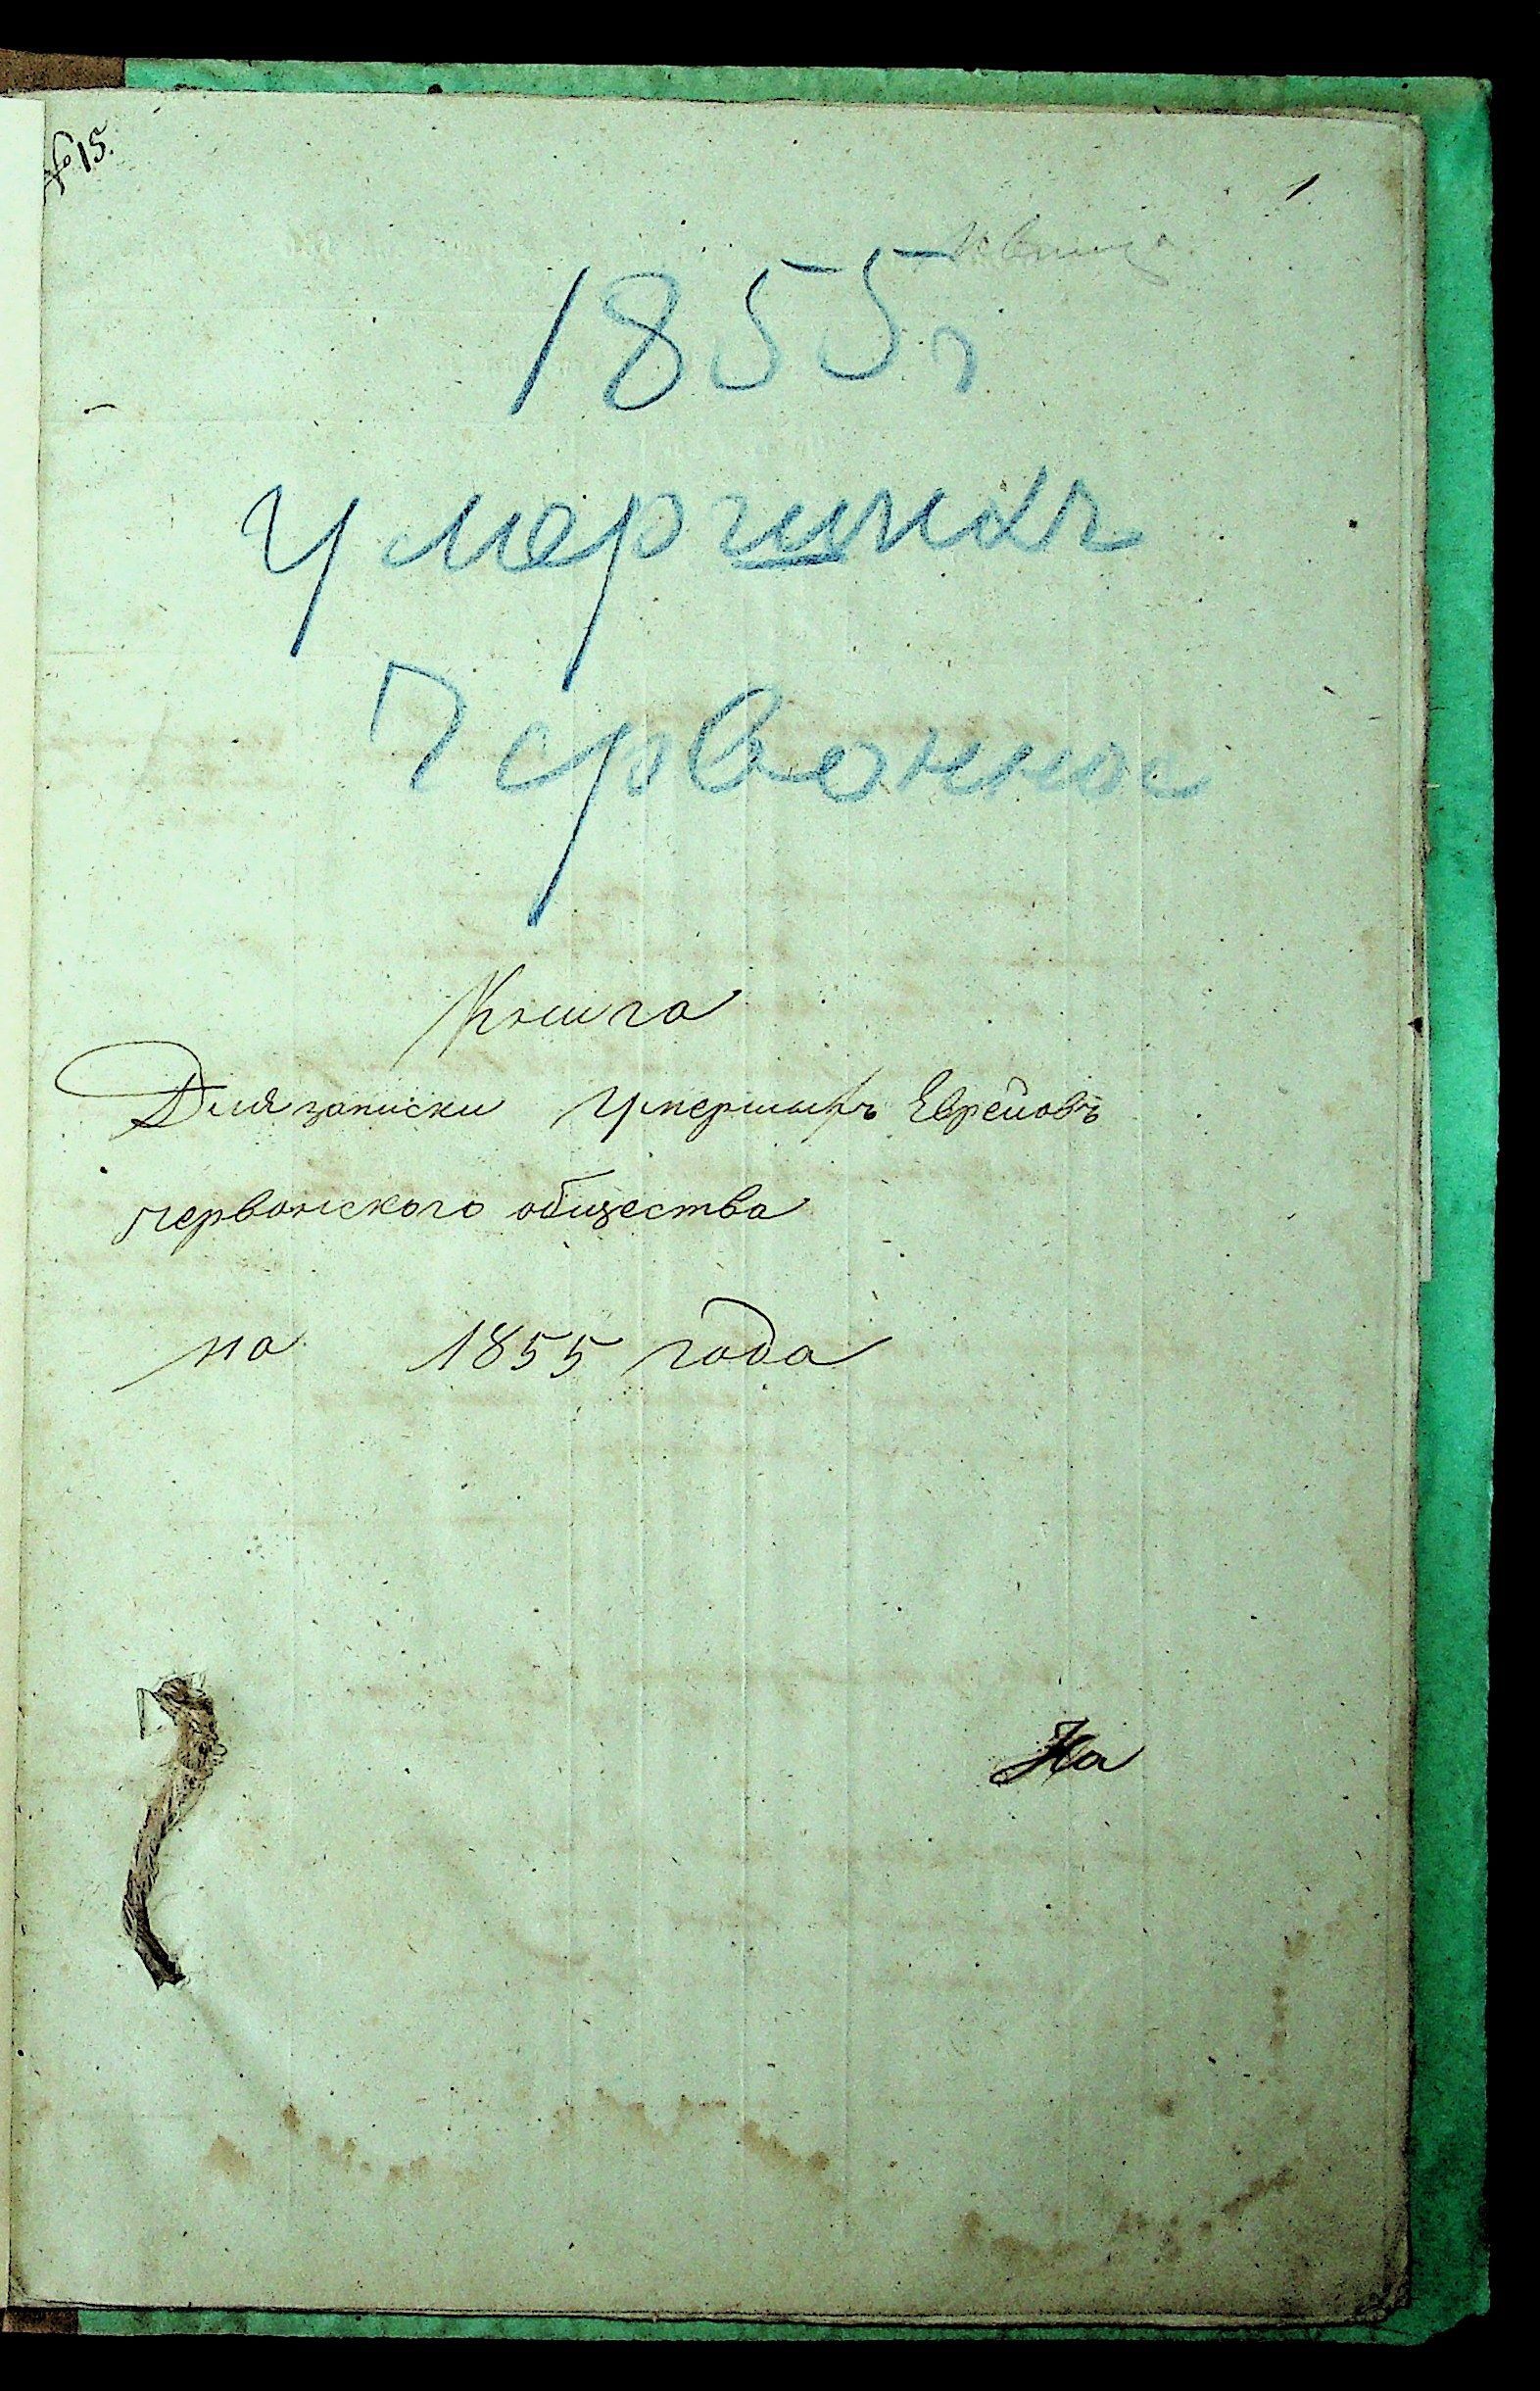 № 15.
1
1855 г
Умершихъ
Червонное
Книга
Для записки Умершихъ Евреиовъ
Червонского общества
на 1855 года
На